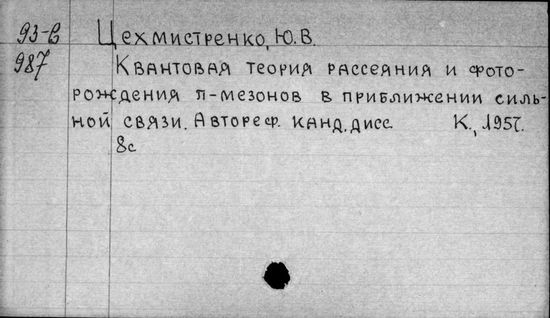 93-6 Цехмистренко, Ю.В.
987 Квантовая теория рассеяния и фото-
рождения π-мезонов в приближении силь-
ной связи. Автореф. канд. дисс. К., 1957.
8с